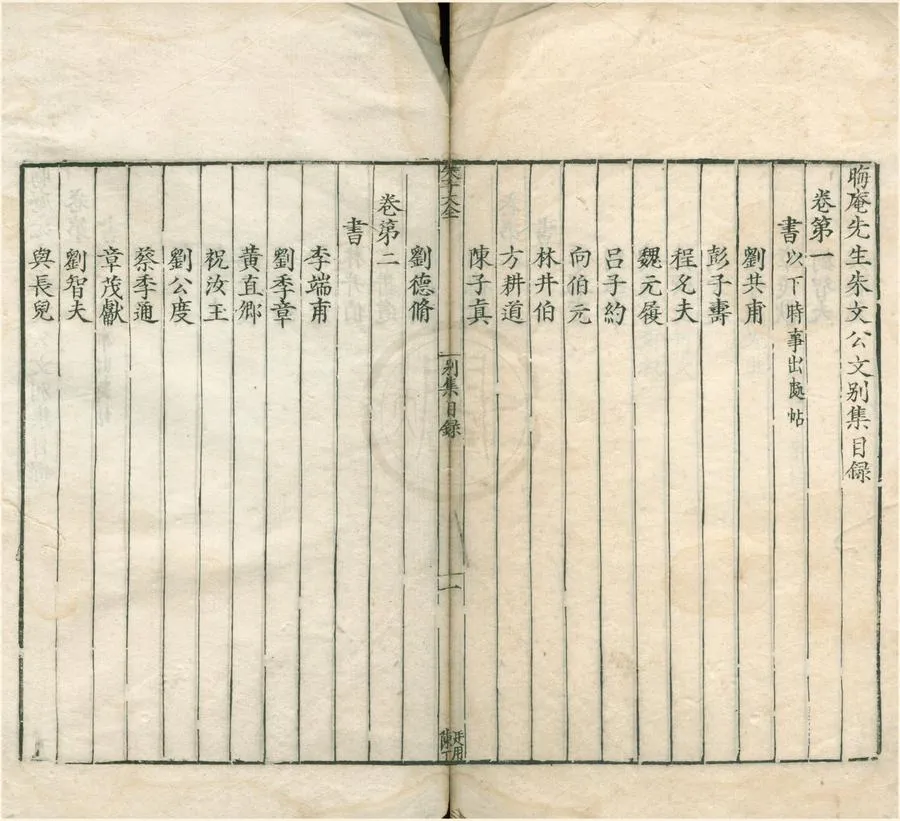 晦庵先生朱文公文别集目録
卷第一
書以下時事出處帖
劉共甫
彭子壽
程允夫
魏元履
呂子約
向伯元
林井伯
方耕道
陳子真
朱子大全
别集目録
一
劉德脩
卷第二
書
李端甫
劉季章
黄直卿
祝汝王
劉公度
蔡季通
章茂獻
劉智夫
與長兒